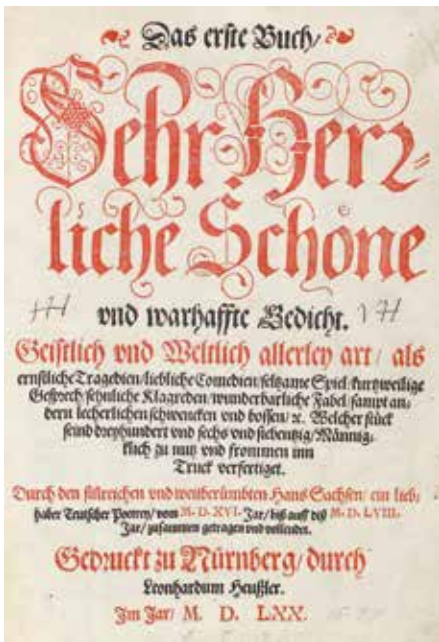 Das erste Buch/
Sehr Herr⸗
liche Schöne
vnd warhaffte Gedicht.
Geistlich vnd Weltlich allerley art/ als
ernstliche Tragedien/ liebliche Comedien/ seltzame Spiel/ kurtzweilige
Gesprech/ sehnliche Klagreden/ wunderbarliche Fabel/ sampt an⸗
dern lecherlichen schwencken vnd bossen/ ꝛc. Welcher stück
seind dreyhundert vnd sechs vnd siebentzig/ Männig⸗
klich zu nutz vnd frommen inn
Truck verfertiget.
Durch den sinreichen vnd weitberümbten Hans Sachsen/ ein lieb⸗
haber Teutscher Poeterey/ vom M. D. XVI. Jar/ biß auff diß M. D. LVIII.
Jar/ zusammen getragen vnd vollendet.
Gedruckt zu Nürnberg/ durch
Leonhardum Heußler.
Im Jar/ M. D. LXX.